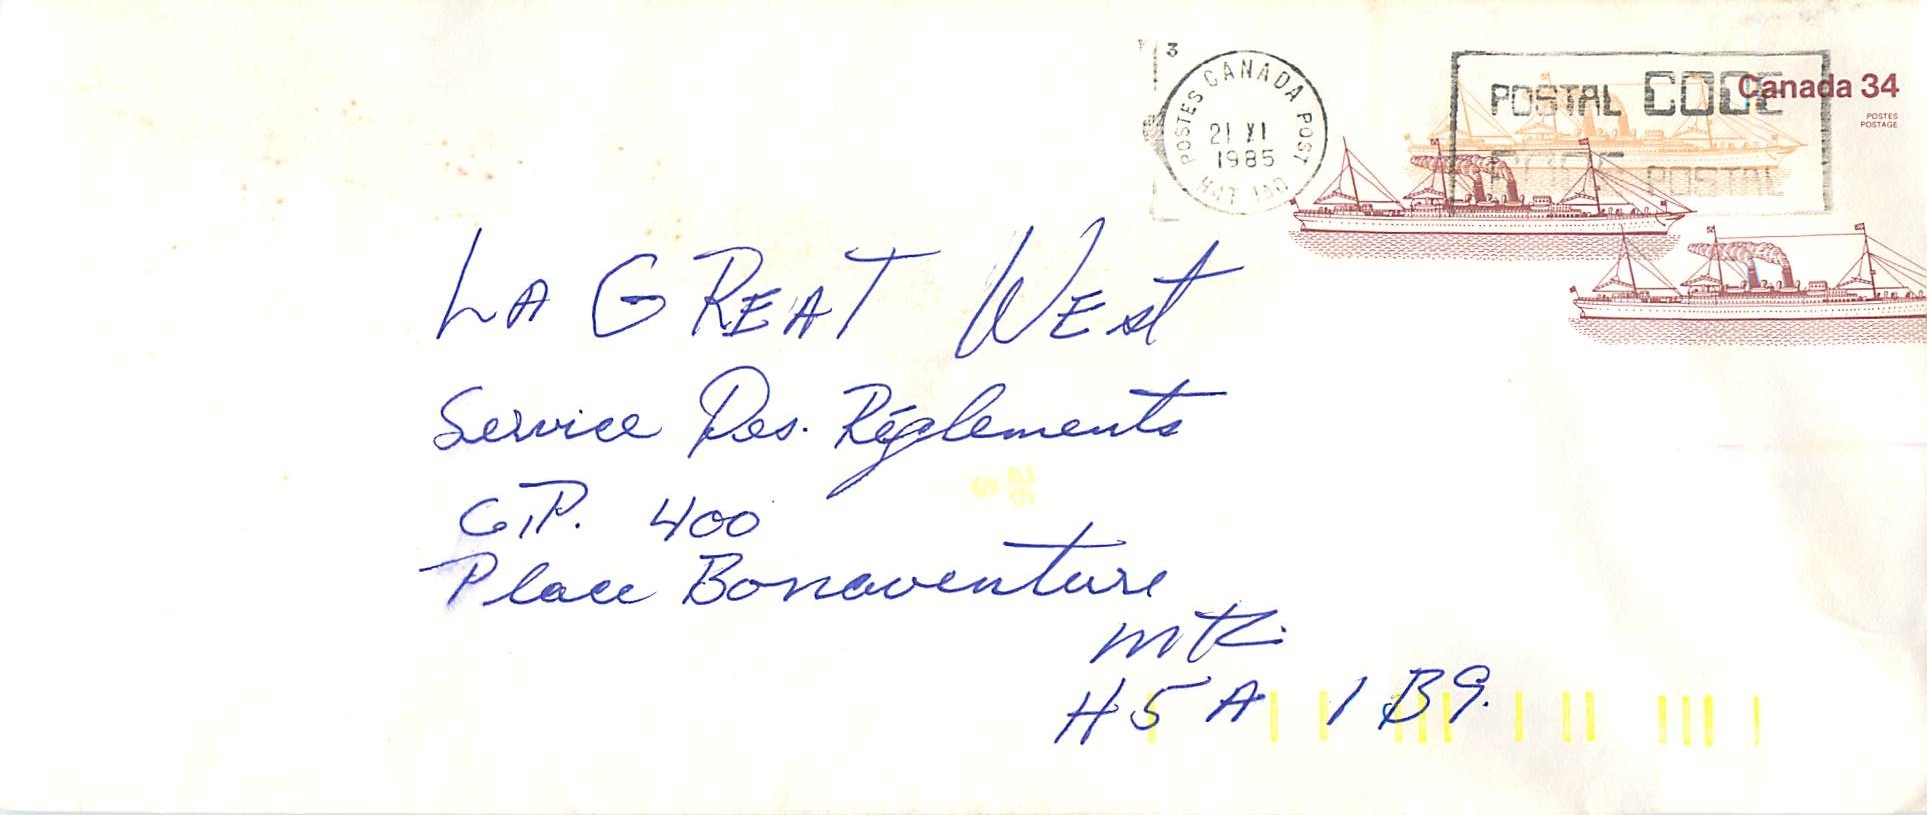 3
POSTES CANADA POST
21 XI
1985
POSTAL CODE
CODE POSTAL
Canada 34
POSTES
POSTAGE
LA GREAT WEst
Service Des. Réglements
C.P. 400
Place Bonaventure
26
5
H5A 1B9.